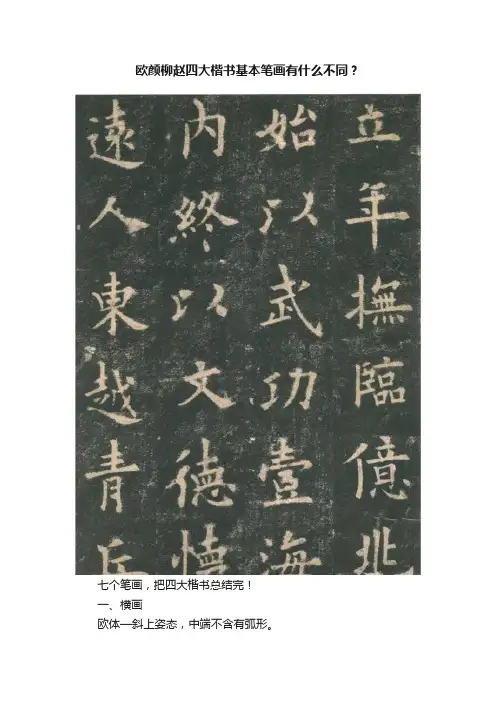 欧颜柳赵四大楷书基本笔画有什么不同？
立年撫臨億兆
始以武功壹海
内終以文德懷
遠人東越青丘
七个笔画，把四大楷书总结完！
一、横画
欧体—斜上姿态，中端不含有弧形。